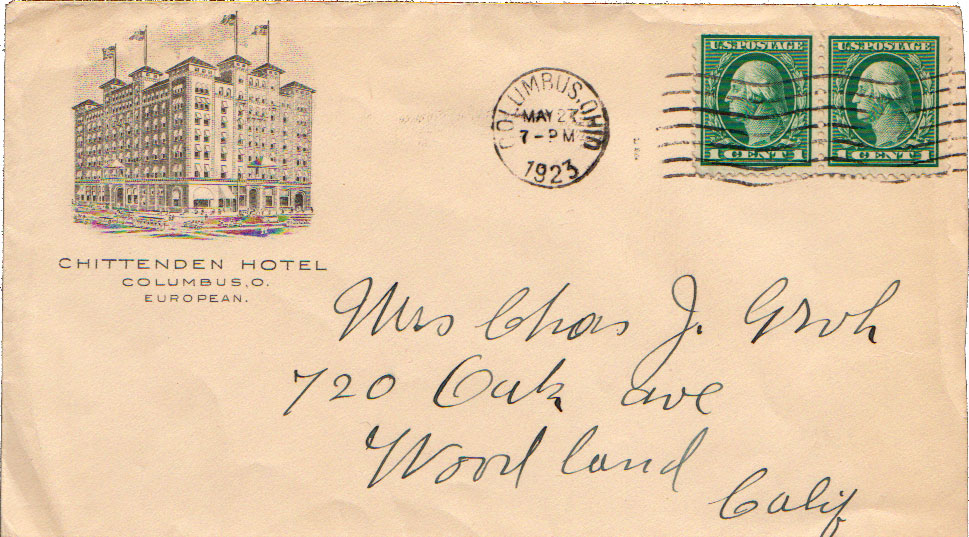 CHITTENDEN HOTEL
COLUMBUS, O.
EUROPEAN.
COLUMBUS, OHIO
MAY 27
7-PM
1923
U.S. POSTAGE
1 CENT 1
U.S. POSTAGE
1 CENT 1
Mrs Chas J. Groh
720 Oak ave
Woodland
Calif